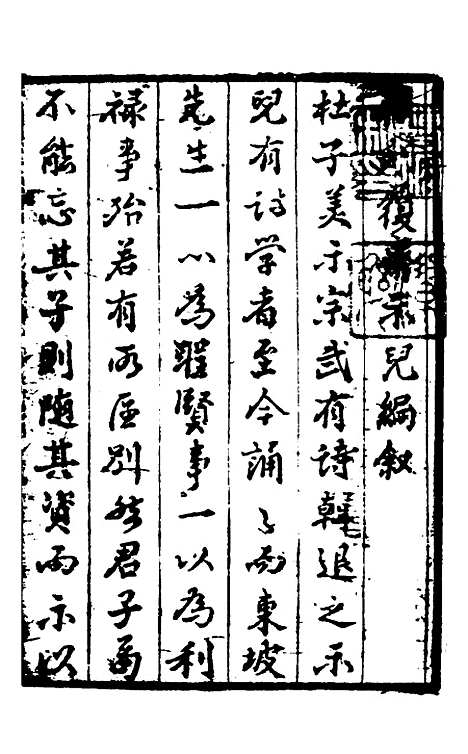 復齋示兒編敘
杜子美示宗武有詩韓退之示
兒有詩学者至今誦之而東坡
先生一以為聖賢事一以為利
祿事殆若有所區別然君子固
不能忘其子則隨其資而示以